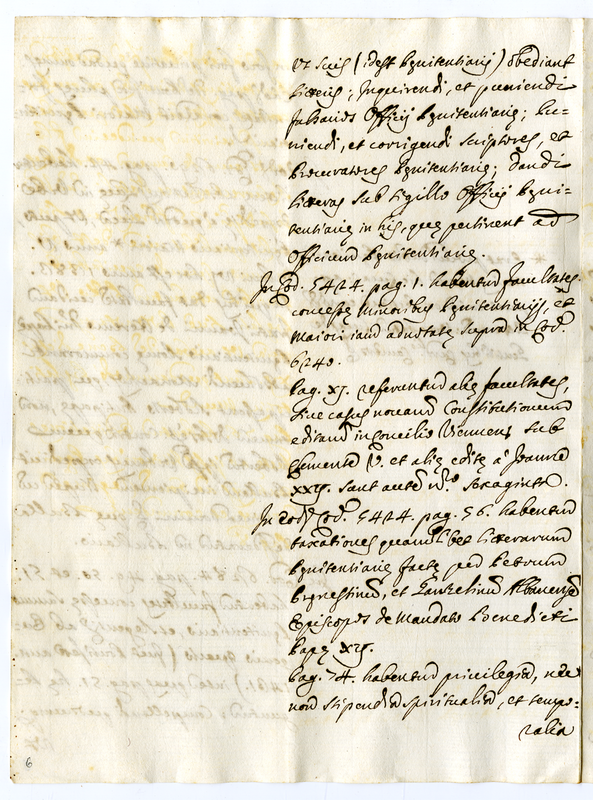 ut suis (idest Pœnitentiarij) obediant
litteris; Inquirendi, et puniendi
falsarios Officij Pœnitentiariæ; Pu-
niendi, et corrigendi scriptores, et
Procuratores Pœnitentiariæ; Dandi
litteras sub sigillo Officij Pœni-
tentiariæ in his, quæ pertinent ad
Officium Pœnitentiariæ.
In Cod. 5424. pag. 1. habentur facultates
concessæ minoribus Pœnitentiarijs, et
Maiori iam adnotatæ supra in Cod.
6240.
Pag. XI. referuntur aliæ facultates,
sive casus novarum Constitutionum
editarum in Concilio Viennens. sub
Clemente V. et aliæ editæ a Joanne
XXII. sunt autem n.º sexaginta.
In eod. Cod. 5424. pag. 56. habentur
taxationes quarumlibet litterarum
Pœnitentiariæ factæ per Petrum
Prænestinum, et Gaucelinum Albanensem
Episcopos de Mandato Benedicti
Papæ XII.
Pag. 74. habentur privilegia, nec
non stipendia spiritualia, et tempo-
ralia
6